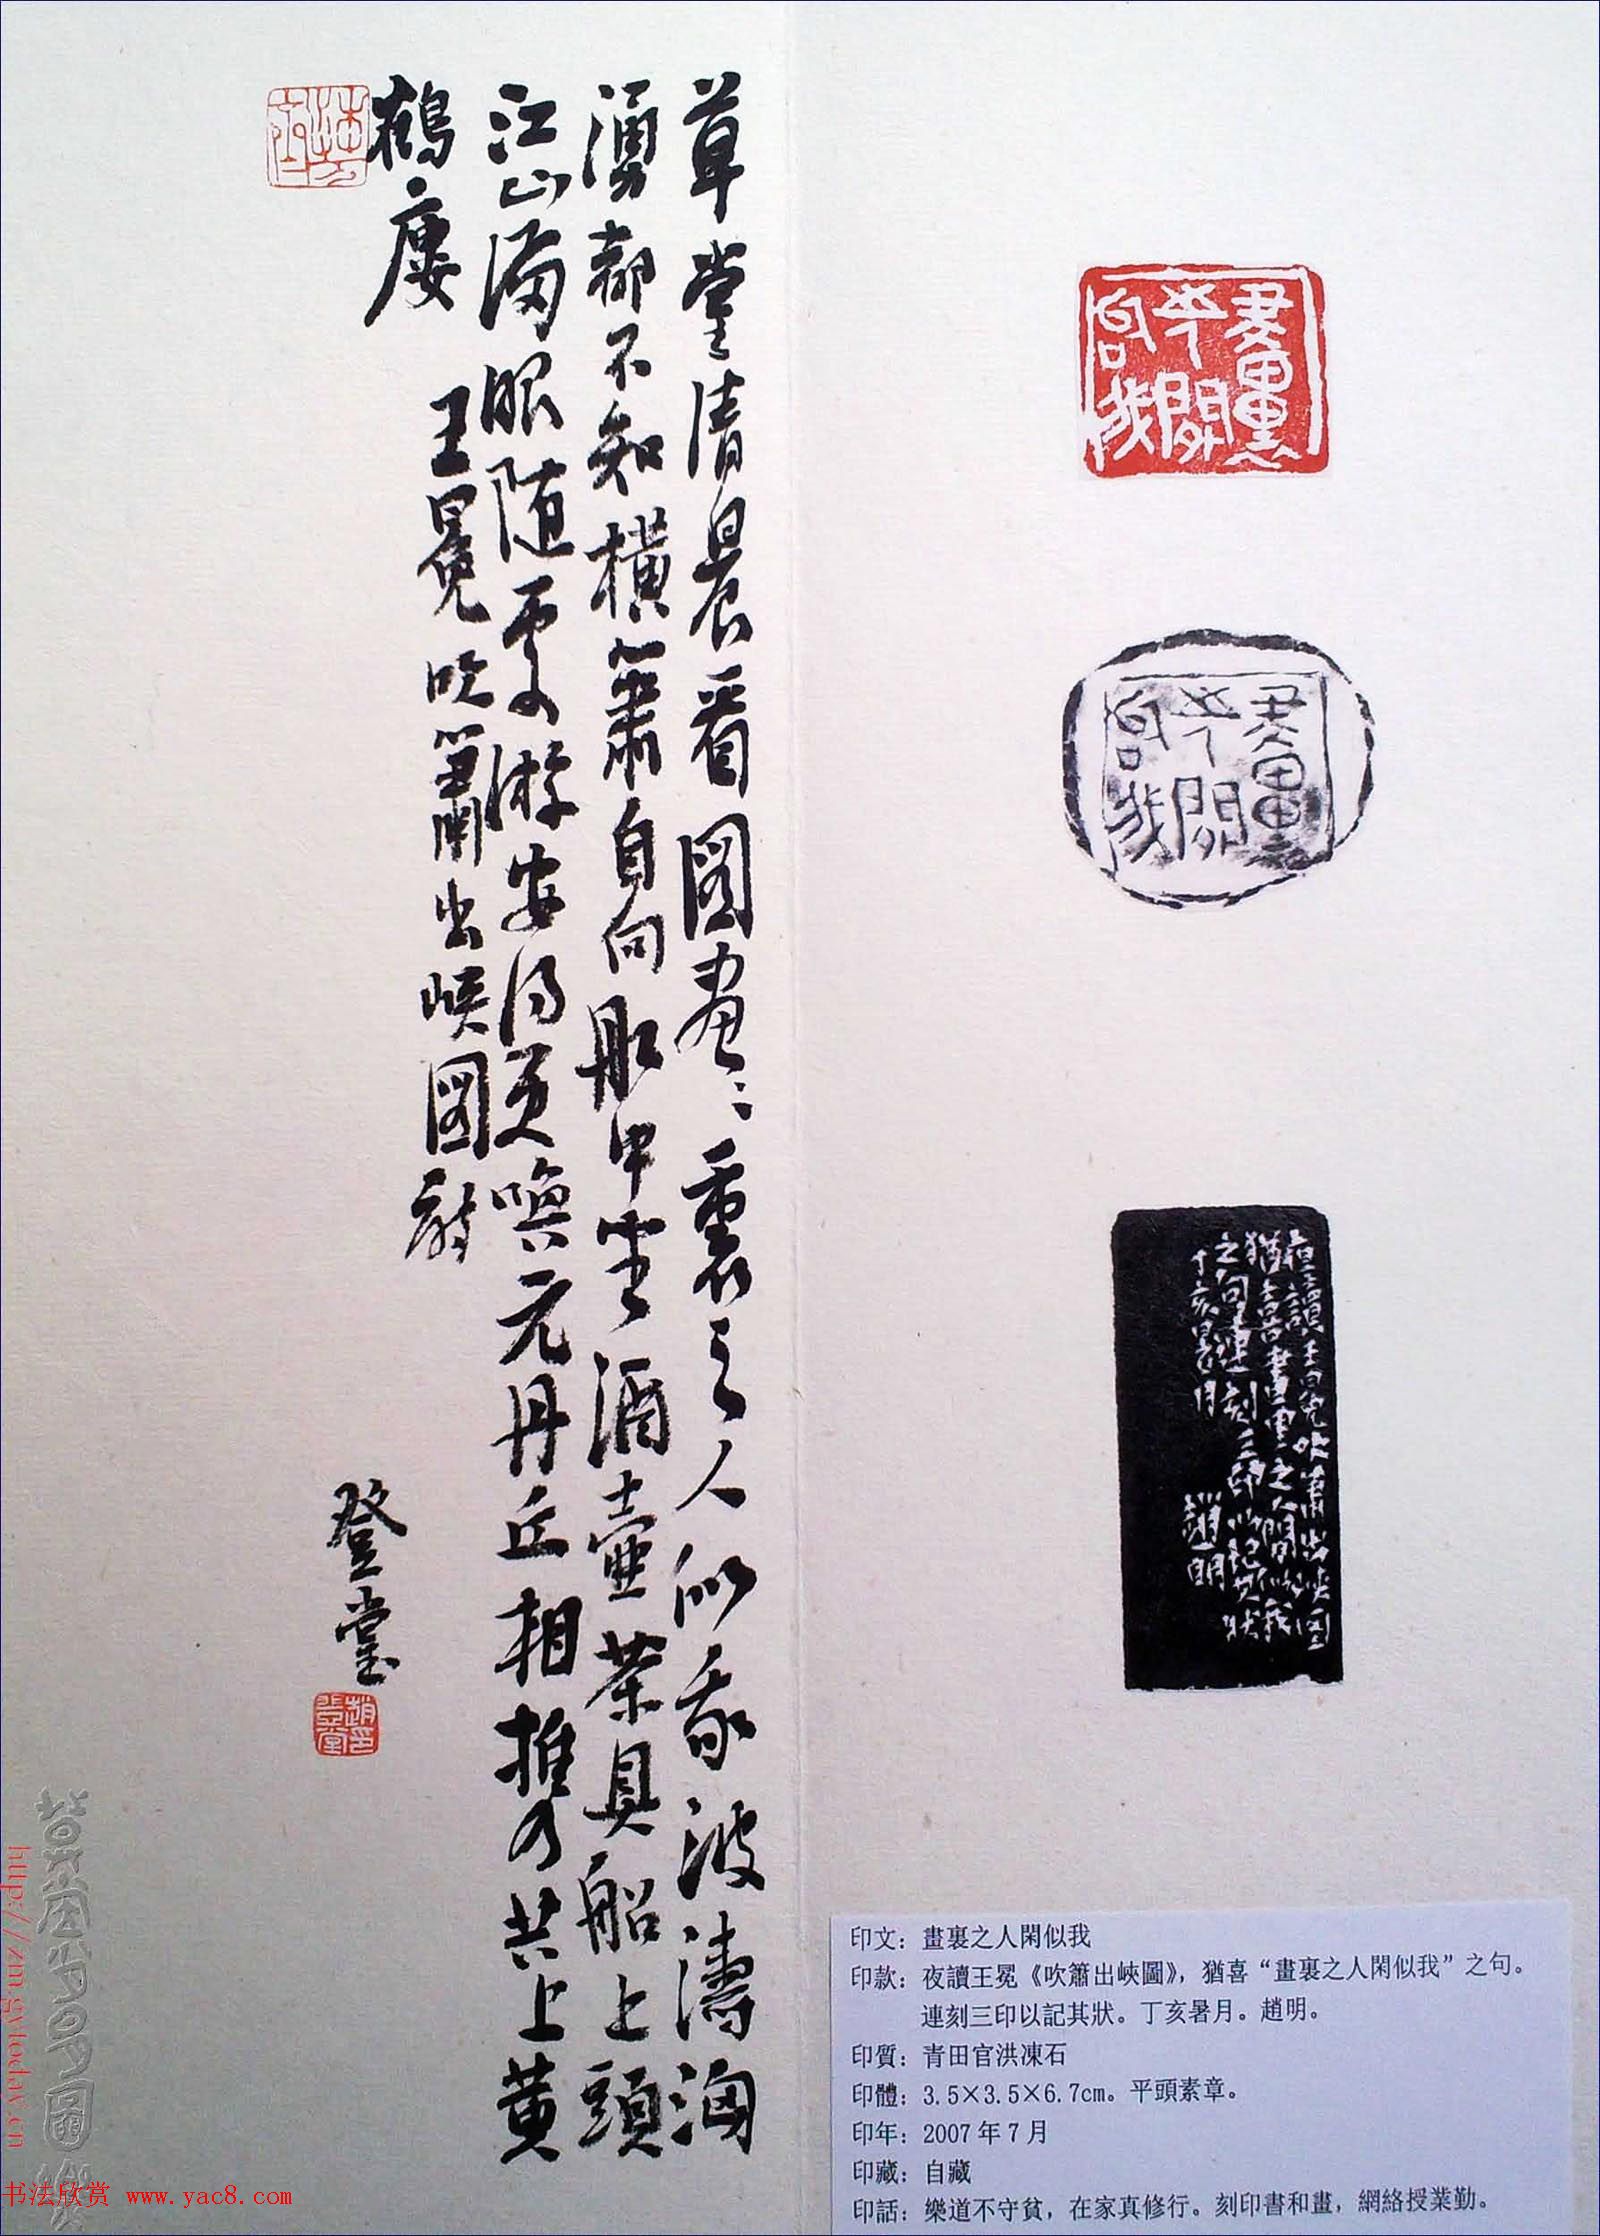 草堂清晨看圖畫〻裏之人似我波濤洶
湧都不知橫簫自向舡中坐酒壺茶具船上頭
江山滿眼随處游安得更喚元丹丘相携共上黄
鶴廔
王冕吹簫出峽圖詩
登堂
趙印登堂
畫裏之人閒似我
畫裏之人閒似我
夜讀王冕吹簫出峽圖
猶喜畫裏之人閒似我
之句連刻三印以記其狀
丁亥暑月 趙明
印文：畫裏之人閑似我
印款：夜讀王冕《吹簫出峽圖》，猶喜“畫裏之人閑似我”之句。
連刻三印以記其狀。丁亥暑月。趙明。
印質：青田官洪凍石
印體：3.5×3.5×6.7cm。平頭素章。
印年：2007年7月
印藏：自藏
印話：樂道不守貧，在家真修行。刻印書和畫，網絡授業勤。
http://zm.gytoday.cn
书法欣赏 www.yac8.com